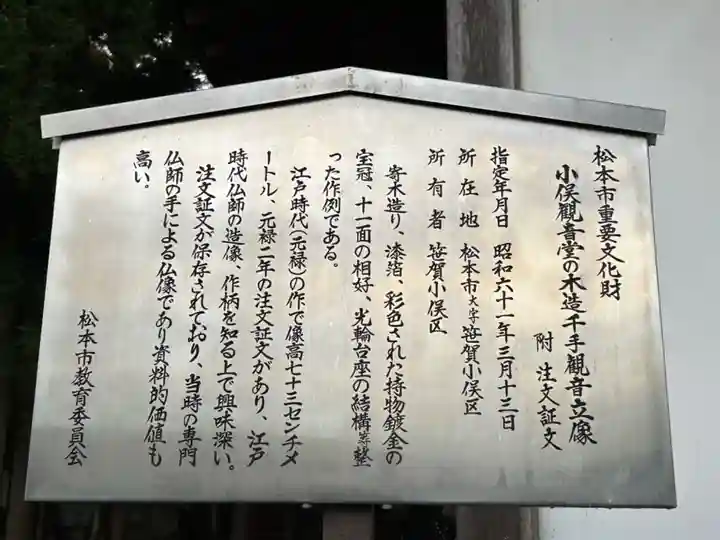 松本市重要文化財
小俣観音堂の木造千手観音立像
附 注文証文
指定年月日 昭和六十一年三月十三日
所在地 松本市大字笹賀小俣区
所有者 笹賀小俣区
寄木造り、漆箔、彩色された持物鍍金の
宝冠、十一面の相好、光輪台座の結構等整
った作例である。
江戸時代(元禄)の作で像高七十三センチメ
ートル、元禄二年の注文証文があり、江戸
時代仏師の造像、作柄を知る上で興味深い。
注文証文が保存されており、当時の専門
仏師の手による仏像であり資料的価値も
高い。
松本市教育委員会